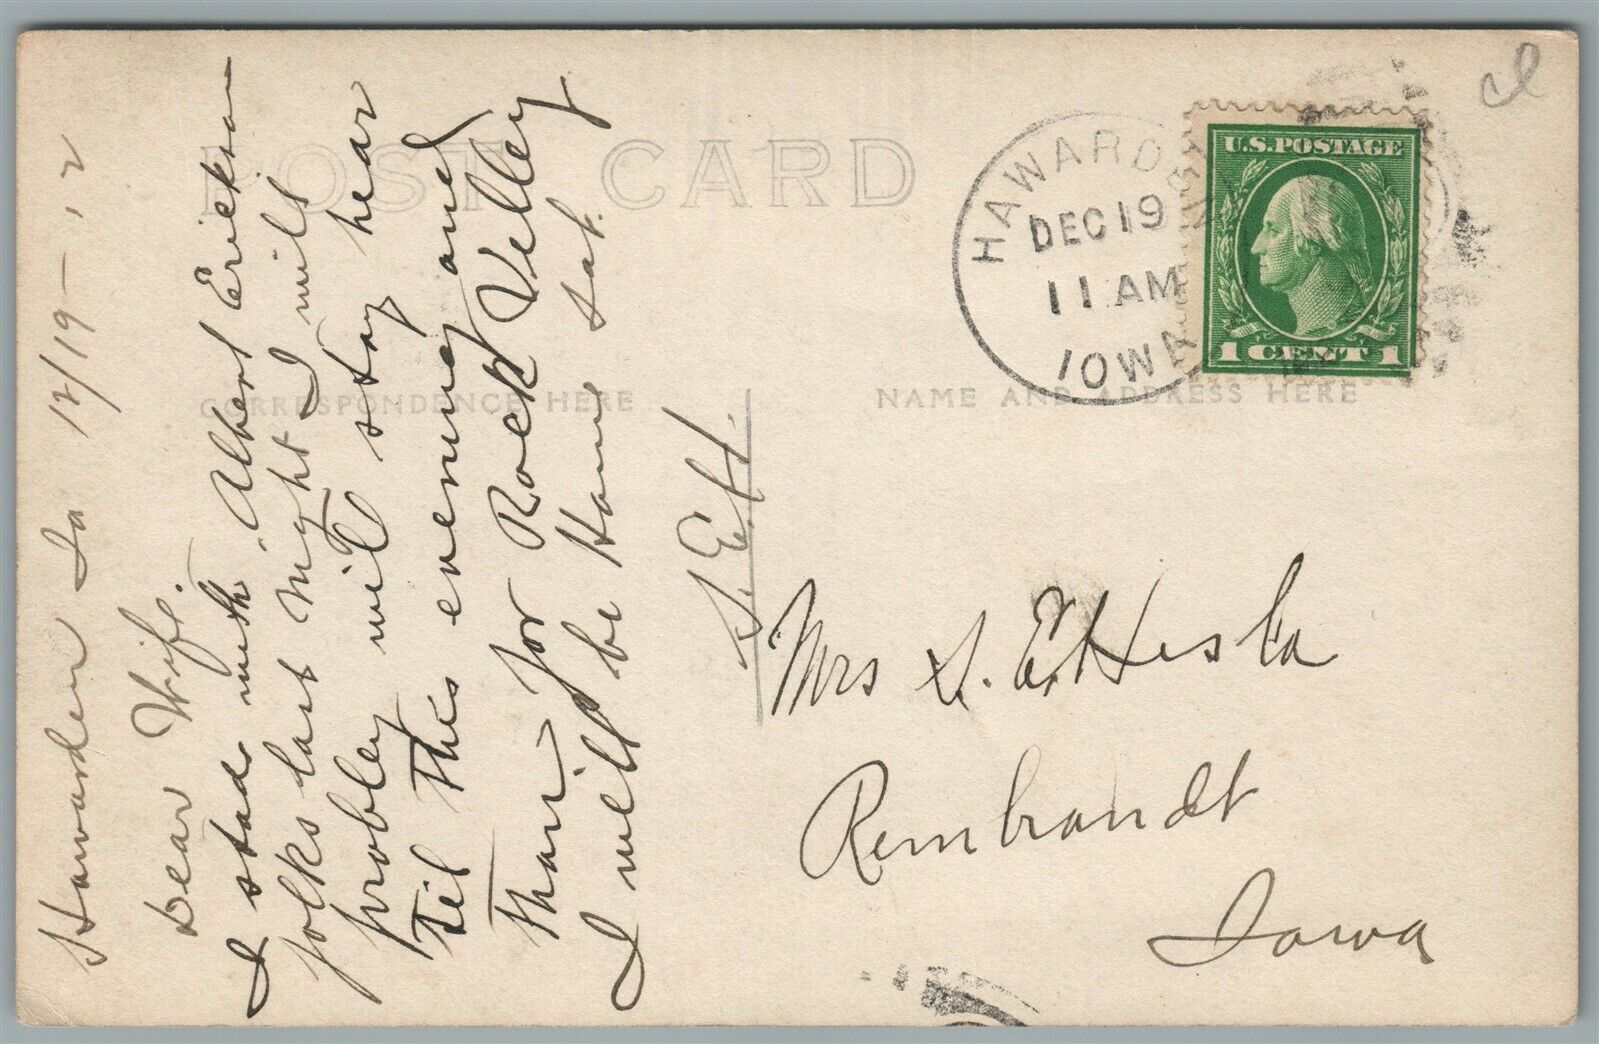 POST CARD
CORRESPONDENCE HERE
NAME AND ADDRESS HERE
HAWARDEN
DEC 19
11 AM
IOWA
U.S. POSTAGE
1 CENT 1
Hawarden Ia 12/19-12
Dear Wife.
I staid with Albert Erickson
folks last Night I will
probley will stay hear
Til This evening and
Than for Rock Velley
I will be Home Sat.
S.E.H.
Mrs S. E. Hesla
Rembrandt
Iowa